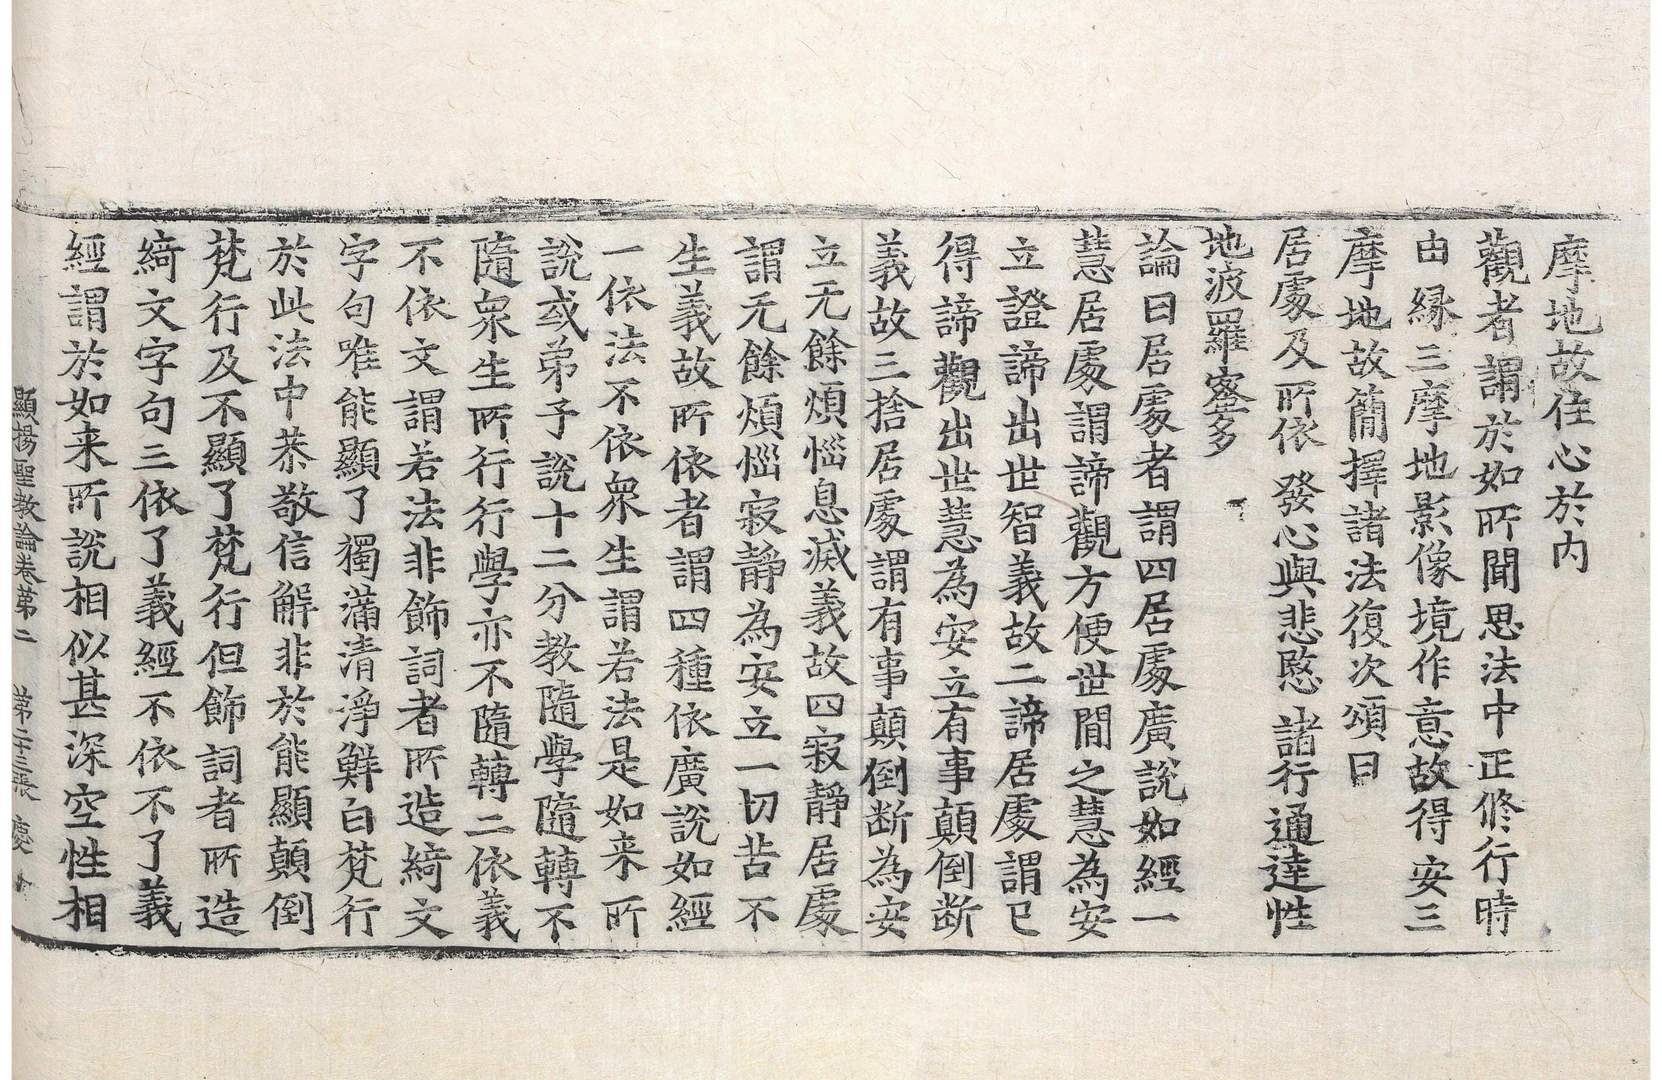 摩地故住心於内
觀者謂於如所聞思法中正修行時
由緣三摩地影像境作意故得安三
摩地故簡擇諸法復次頌曰
居處及所依 發心與悲愍 諸行通達性
地波羅蜜多
論曰居處者謂四居處廣說如經一
慧居處謂諦觀方便世間之慧為安
立證諦出世智義故二諦居處謂已
得諦觀出世慧為安立有事顛倒断
義故三捨居處謂有事顛倒断為安
立无餘煩惱息滅義故四寂靜居處
謂无餘煩惱寂靜為安立一切苦不
生義故所依者謂四種依廣說如經
一依法不依眾生謂若法是如来所
說或弟子說十二分教隨學隨轉不
隨眾生所行行學亦不隨轉二依義
不依文謂若法非飾詞者所造綺文
字句唯能顯了獨滿清淨鮮白梵行
於此法中恭敬信解非於能顯顛倒
梵行及不顯了梵行但飾詞者所造
綺文字句三依了義經不依不了義
經謂於如来所說相似甚深空性相
顯揚聖教論卷第二 第二十三張 慶